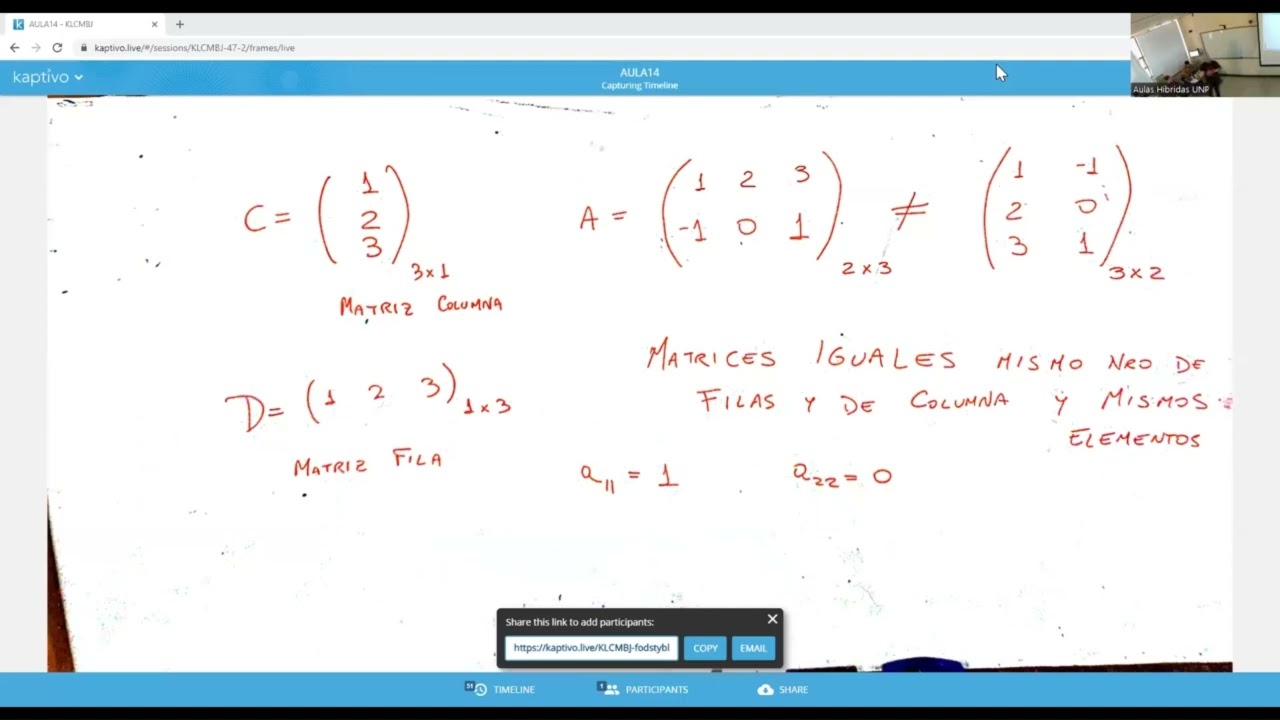 AULA14 - KLCMBJ
kaptivo.live/#/sessions/KLCMBJ-47-2/frames/live
kaptivo
AULA14
Capturing Timeline
Aulas Hibridas UNP
C = ( 1
2
3 ) 3x1
MATRIZ COLUMNA
A = ( 1 2 3
-1 0 1 ) 2x3
≠
( 1 -1
2 0
3 1 ) 3x2
D = ( 1 2 3 ) 1x3
MATRIZ FILA
MATRICES IGUALES MISMO NRO DE
FILAS Y DE COLUMNA Y MISMOS
ELEMENTOS
a11 = 1 a22 = 0
Share this link to add participants:
https://kaptivo.live/KLCMBJ-fodstybl COPY EMAIL
51 TIMELINE 1 PARTICIPANTS SHARE